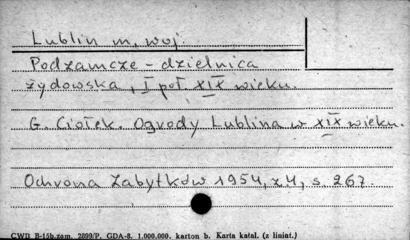 Lublin m, woj.
Podzamcze - dzielnica
żydowska, I poł. XIX wieku.
G. Ciołek. Ogrody Lublina w XIX wieku.
Ochrona Zabytków 1954, z 4, s. 267.
CWD B-15b, zam. 2899/P. GDA-8. 1.000.000. karton b. Karta katal. (z liniat.)